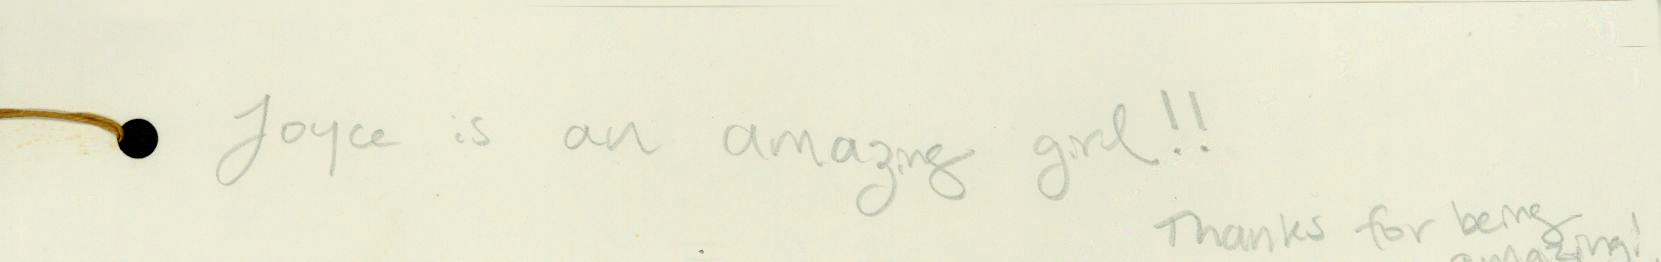 Joyce is an amazing girl!!
Thanks for being
amazing!